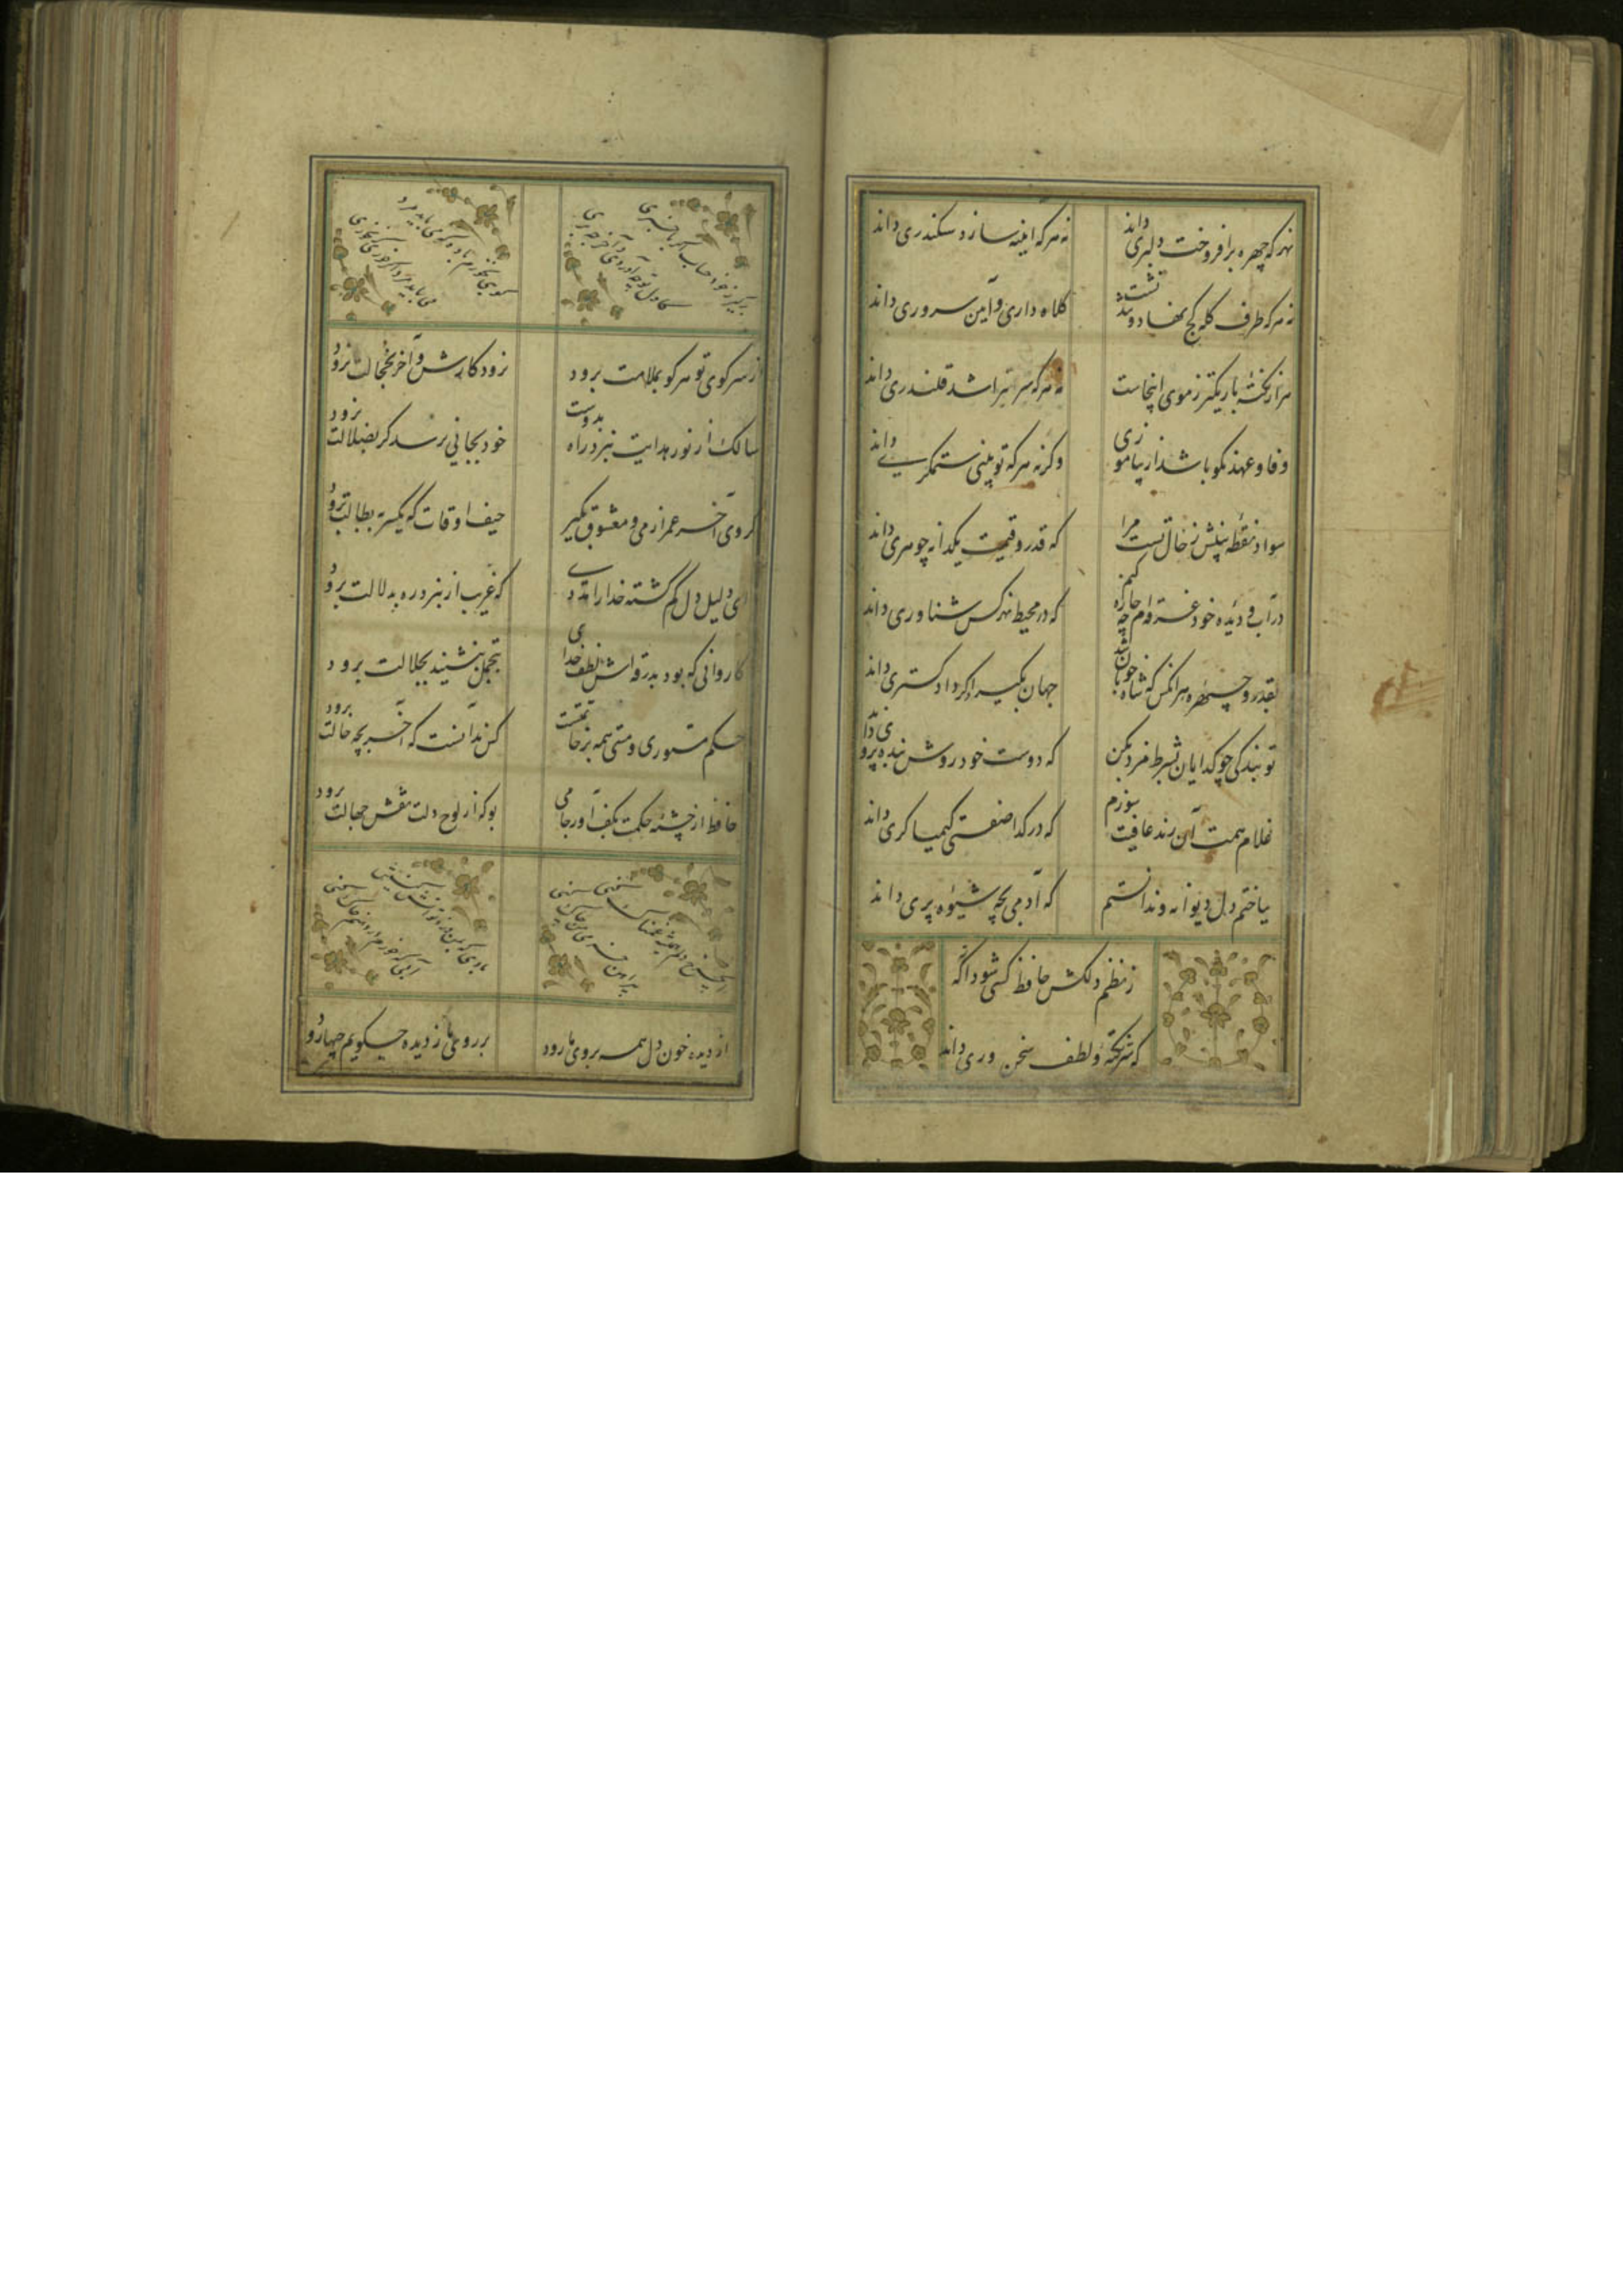 نه هرکه چهره برافروخت دلبری داند
نه هرکه آینه سازد سکندری داند
نه هرکه طرف کله کج نهاد و تند نشست
کلاه داری و آیین سروری داند
هزار نکتهٔ باریکتر ز موی اینجاست
نه هرکه سر تراشد قلندری داند
وفا و عهد نکو باشد ار بیاموزی
وگرنه هرکه تو بینی ستمگری داند
سواد نقطه بینش ز خال تست مرا
که قدر و قیمت یکدانه جوهری داند
در آب دیده خود غرقه‌ام چه چاره کنم
که در محیط نه هرکس شناوری داند
بقد و چهره هر آنکس که شاه خوبان شد
جهان بگیرد اگر دادگستری داند
تو بندگی چو گدایان بشرط مزد مکن
که دوست خود روش بنده پروری داند
غلام همت آن رند عافیت سوزم
که در گدا صفتی کیمیاگری داند
بباختم دل دیوانه و ندانستم
که آدمی بچه شیوه پری داند
ز نظم دلکش حافظ کسی شود آگه
که سر نکته و لطف سخن وری داند
از سر کوی تو هر کو بملامت برود
نرود کارش و آخر بخجالت برود
سالک از نور هدایت ببرد راه بدوست
خود بجائی نرسد گر بضلالت برود
گروی آخر عمر از می و معشوق بگیر
حیف اوقات که یکسر ببطالت برود
ای دلیل دل گم گشته خدا را مددی
که غریب ار نبرد ره بدلالت برود
کاروانی که بود بدرقه‌اش لطف خدای
بتجمل بنشیند بجلالت برود
حکم مستوری و مستی همه بر خاتمتست
کس ندانست که آخر بچه حالت برود
حافظ از چشمه حکمت بکف آور جامی
بو که از لوح دلت نقش جهالت برود
از دیده خون دل همه بر روی ما رود
بر روی ما ز دیده چگویم چها رود